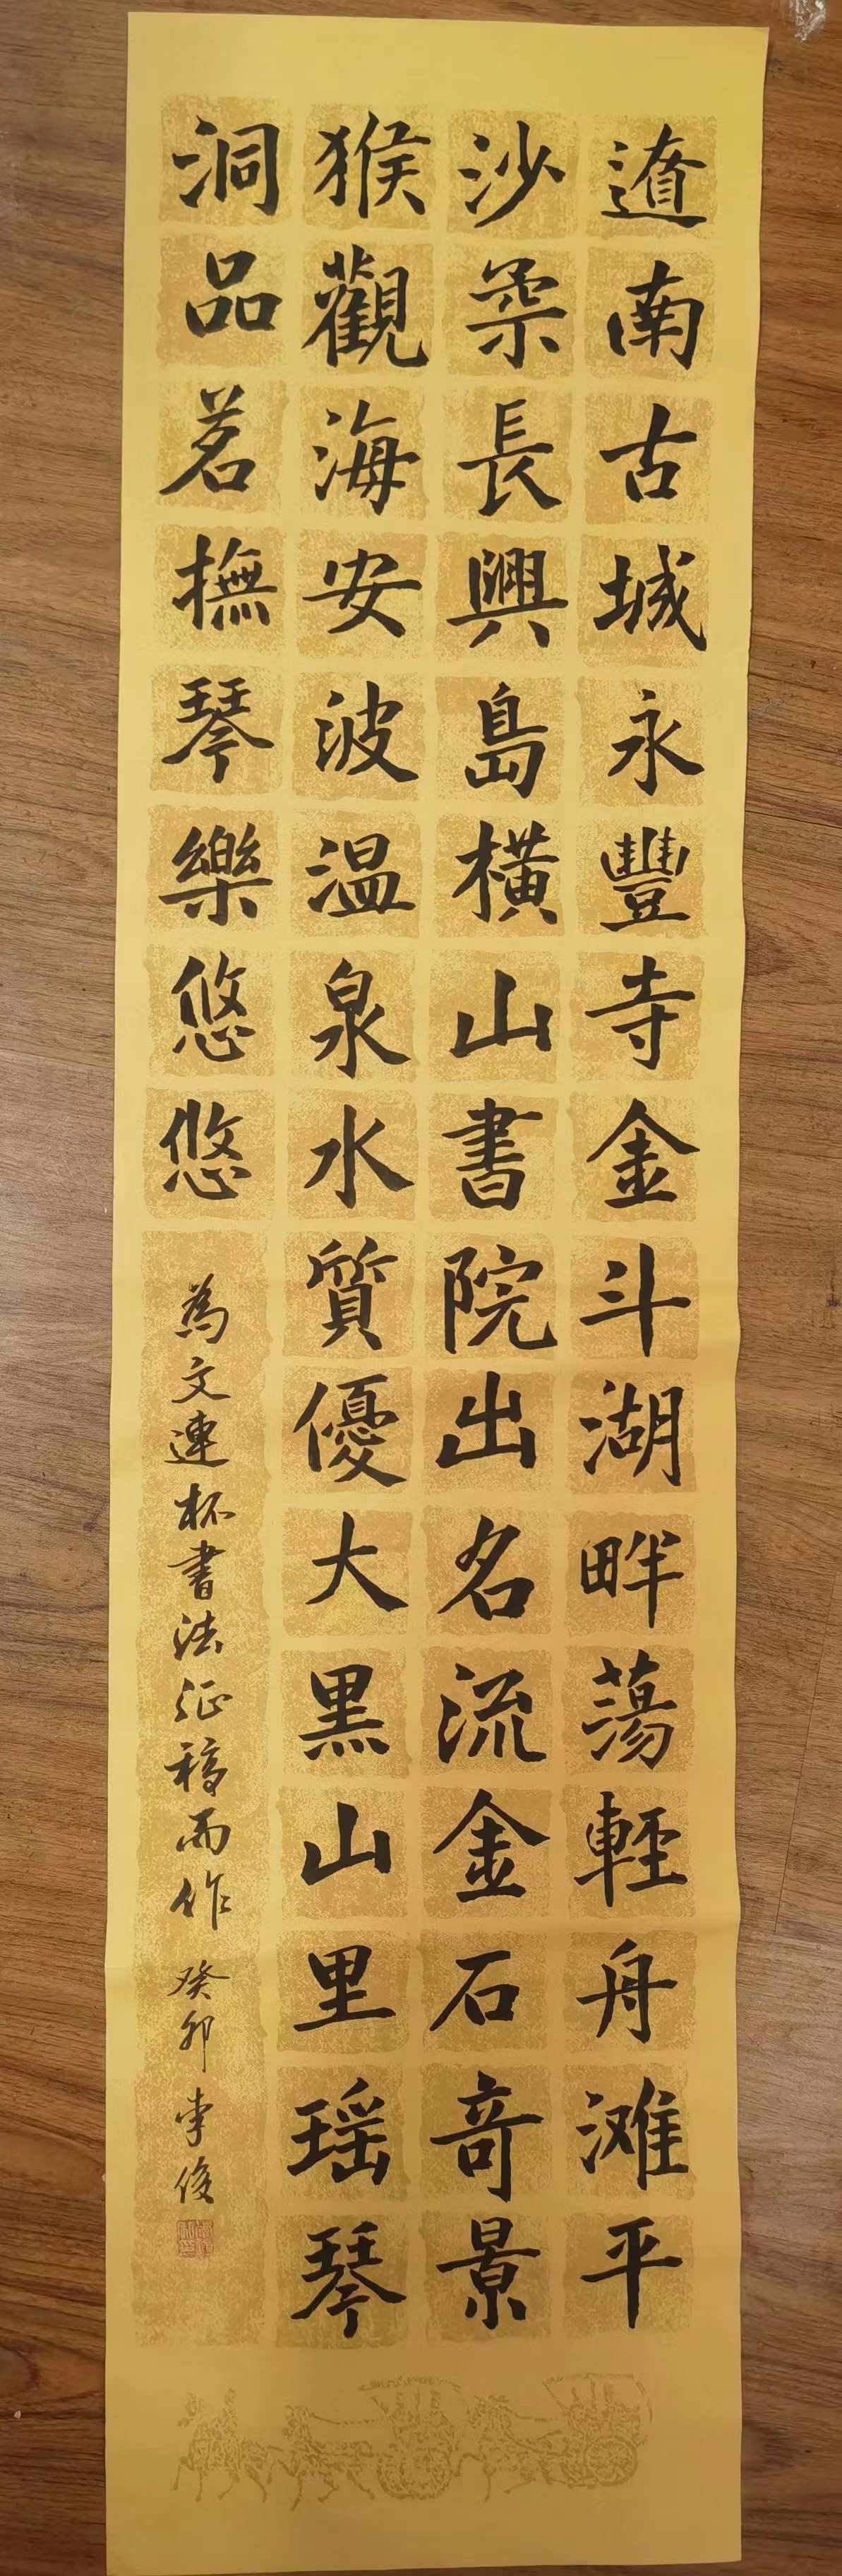 遼南古城永豐寺金斗湖畔蕩輕舟滩平
沙柔長興島橫山書院出名流金石奇景
猴觀海安波温泉水質優大黑山里瑶琴
洞品茗撫琴樂悠悠
為文連杯書法征稿而作 癸卯 李俊